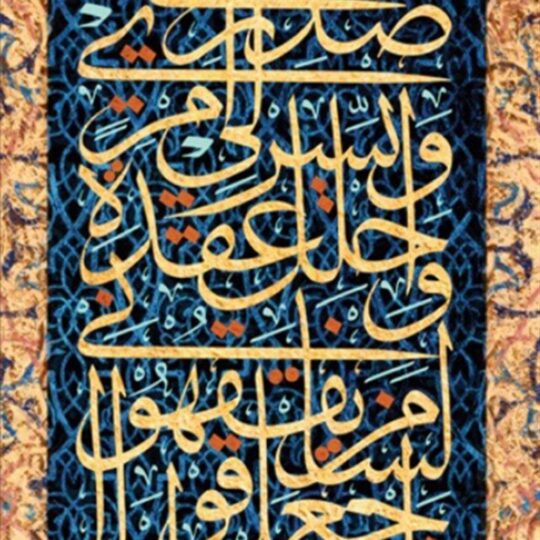 صَدْرِي
وَيَسِّرْ لِي أَمْرِي
وَاحْلُلْ عُقْدَةً
مِنْ لِسَانِي
يَفْقَهُوا
قَوْلِي